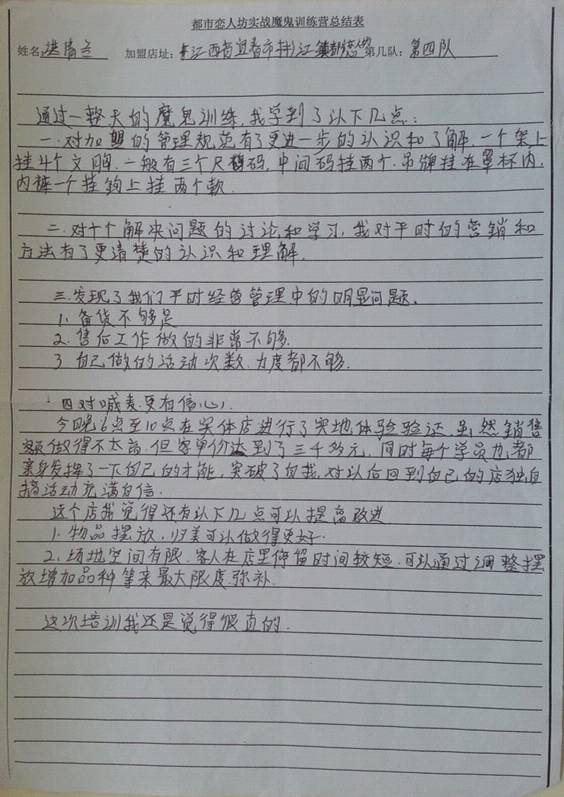 都市恋人坊实战魔鬼训练营总结表
姓名: 加盟店址: 江西省宜春市 第几队: 第四队
通过一整天的魔鬼训练,我学到了以下几点:
一.对加盟的管理规范有了更进一步的认识和了解,一个架上
挂4个文胸,一般有三个尺码,中间码挂两个.吊牌挂在罩杯内,
内裤一个挂钩上挂两个款.
二.对十个解决问题的讨论和学习,我对平时的营销和
方法有了更清楚的认识和理解.
三.发现了我们平时经营管理中的明显问题.
1.备货不够足
2.售后工作做的非常不够.
3 自己做的活动次数.力度都不够.
四 对喊麦更有信心.
今晚6点至10点在实体店进行了实地体验验证.虽然销售
额做得不太高,但客单价达到了三千多元,同时每个学员也都
亲身发挥了一下自己的才能,突破了自我.对以后回到自己的店独自
搞活动充满自信.
这个店我觉得还有以下几点可以提高改进
1.物品摆放,归类可以做得更好.
2.场地空间有限.客人在店里停留时间较短.可以通过调整摆
放增加品种等来最大限度弥补.
这次培训我还是觉得很直的.